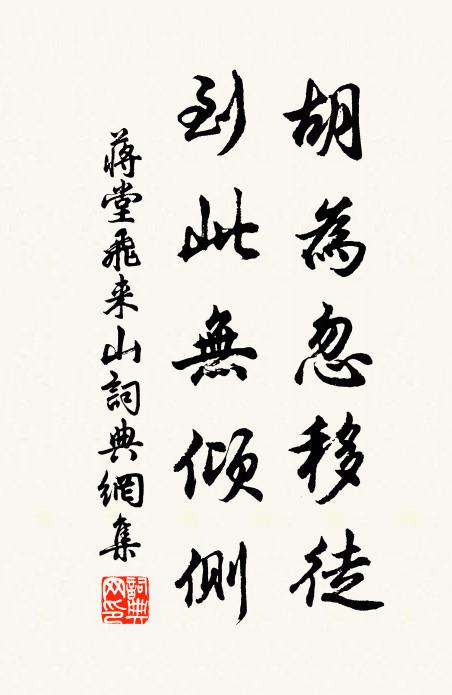 胡為忽移徙
到此無傾側
蔣堂飛来山詞典網集
詞典网印